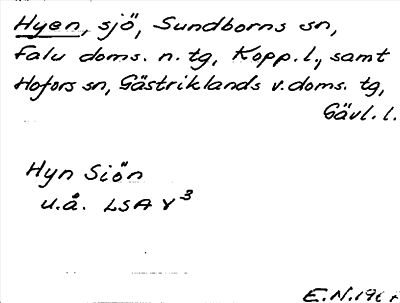 Hyen, sjö, Sundborns sn,
Falu doms. n. tg, Kopp. l., samt
Hofors sn, Gästriklands v. doms. tg,
Gävl. l.
Hyn Siön
u.å. LSA γ³
E.N.